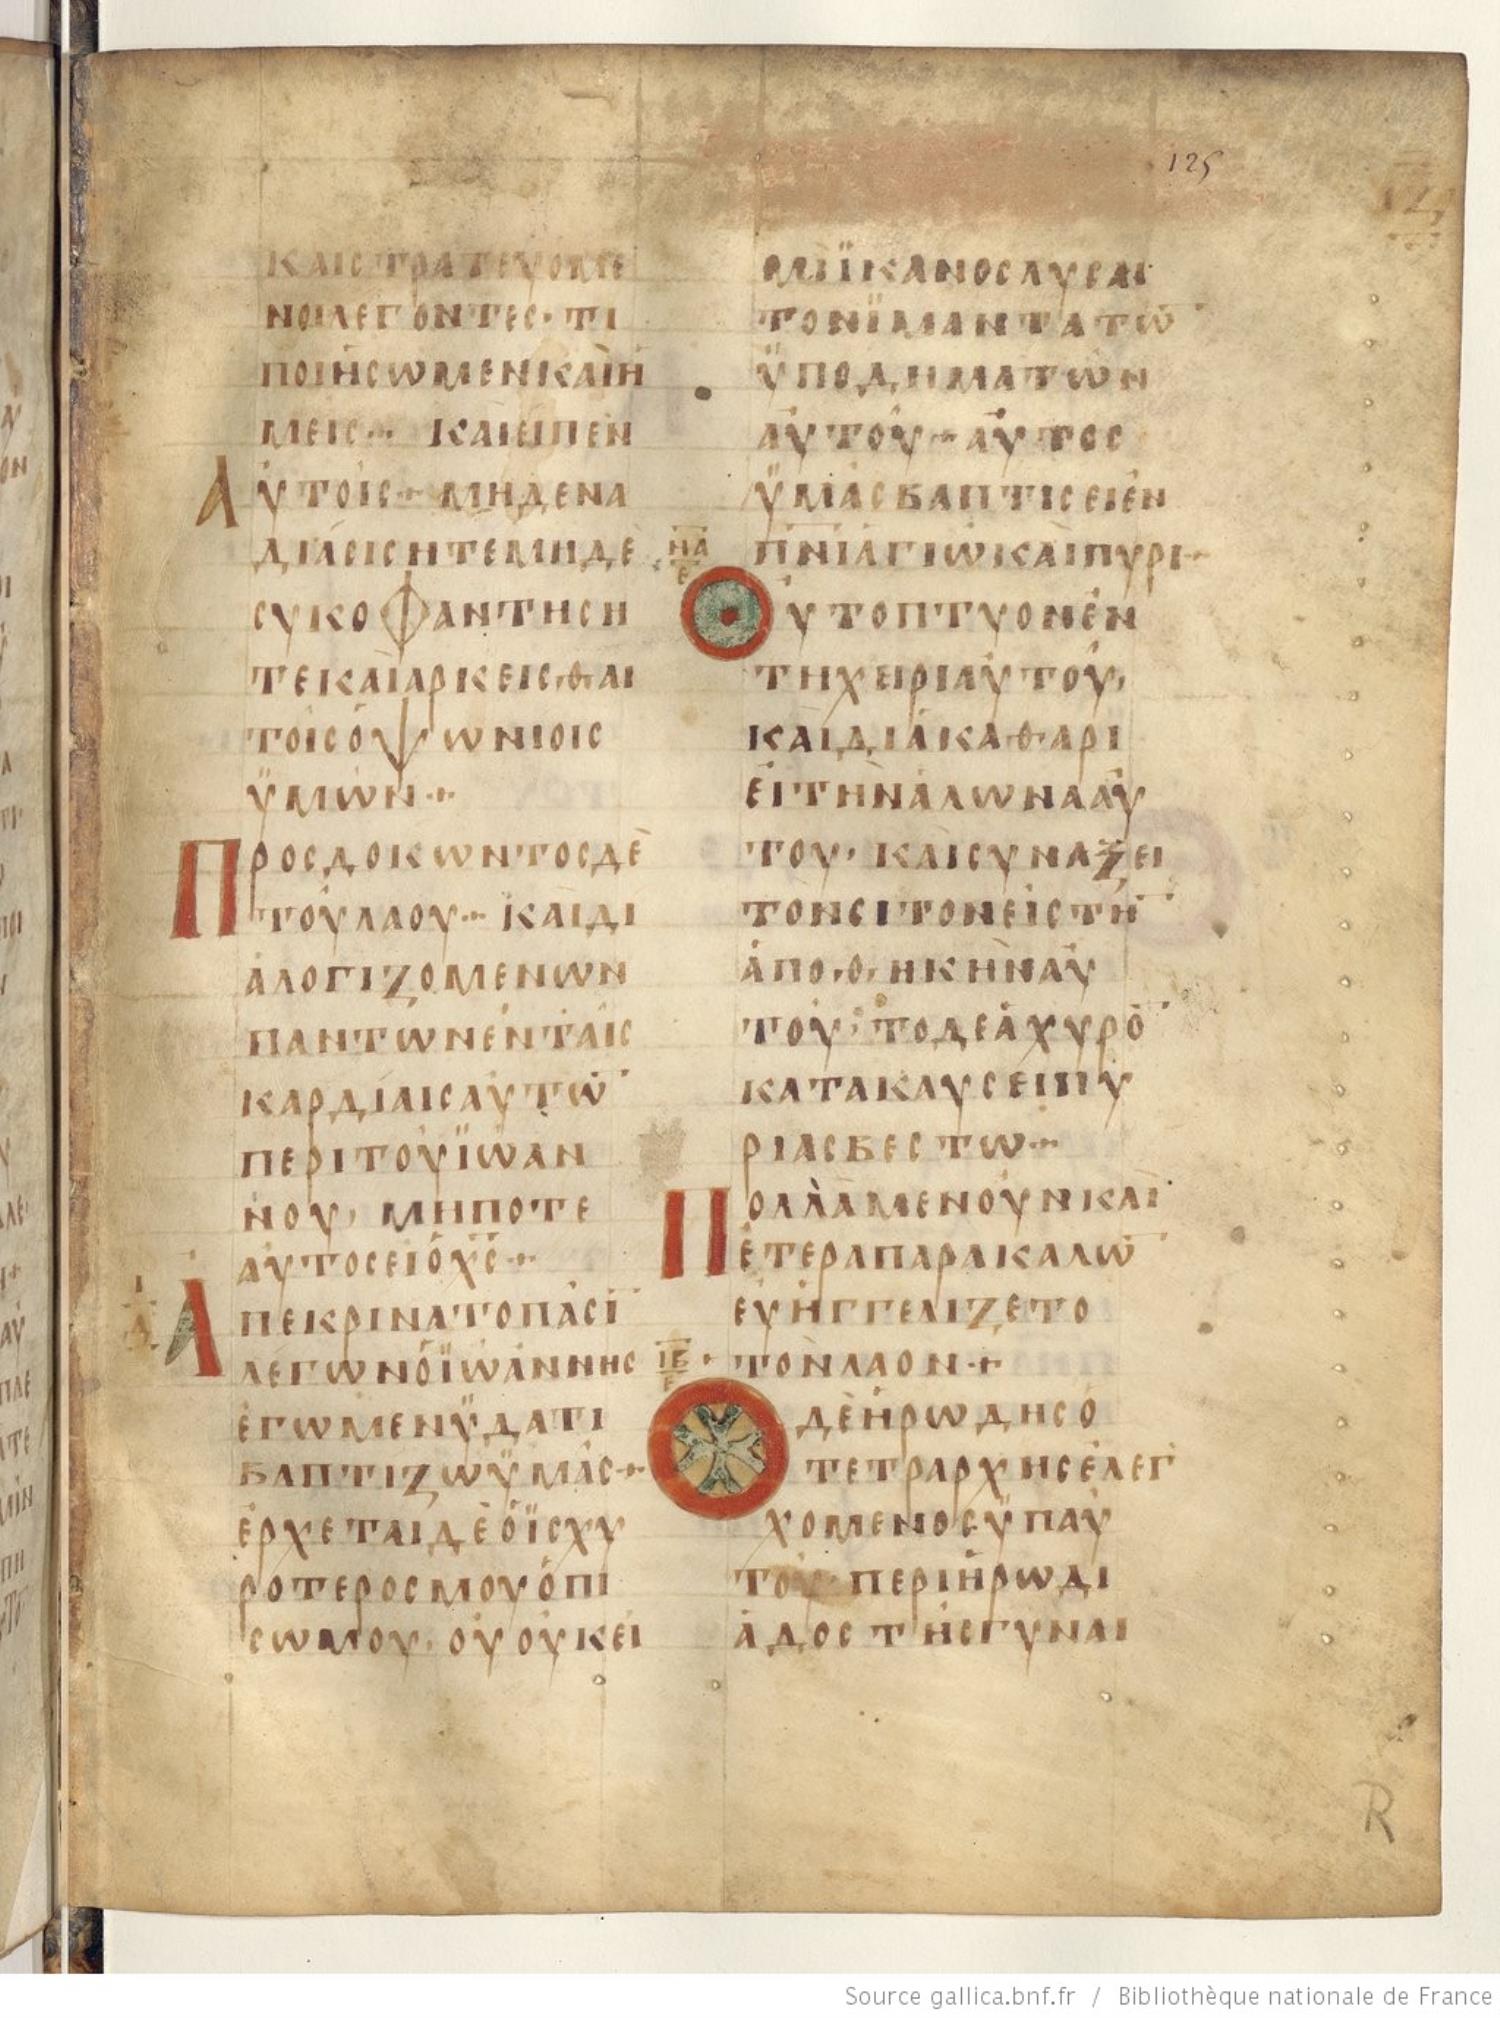 125
ΚΑΙΣΤΡΑΤΕΥΟΜΕ
ΝΟΙΛΕΓΟΝΤΕΣ· ΤΙ
ΠΟΙΗΣΩΜΕΝΚΑΙΗ
ΜΕΙΣ·· ΚΑΙΕΙΠΕΝ
Α ΥΤΟΙΣ·· ΜΗΔΕΝΑ
ΔΙΑΣΙΣΗΤΕΜΗΔΕ
ΣΥΚΟΦΑΝΤΗΣΗ
ΤΕΚΑΙΑΡΚΕΙΣΘΑΙ
ΤΟΙΣΟΨΩΝΙΟΙΣ
ΫΜΩΝ··
ΠΡΟΣΔΟΚΩΝΤΟΣΔΕ
ΤΟΥΛΑΟΥ·· ΚΑΙΔΙ
ΑΛΟΓΙΖΟΜΕΝΩΝ
ΠΑΝΤΩΝΕΝΤΑΙΣ
ΚΑΡΔΙΑΙΣΑΥΤΩ̅
ΠΕΡΙΤΟΥΪΩΑΝ
ΝΟΥ, ΜΗΠΟΤΕ
ΑΥΤΟΣΕΙΟΧ̅Σ̅··
ΑΠΕΚΡΙΝΑΤΟΠΑΣΙ̅
ΛΕΓΩΝΟΪΩΑΝΝΗΣ
ΕΓΩΜΕΝΫΔΑΤΙ
ΒΑΠΤΙΖΩΫΜΑΣ··
ΕΡΧΕΤΑΙΔΕΟΪΣΧΥ
ΡΟΤΕΡΟΣΜΟΥΟΠΙ
ΣΩΜΟΥ· ΟΥΟΥΚΕΙ
ΜΙΪΚΑΝΟΣΛΥΣΑΙ
ΤΟΝΪΜΑΝΤΑΤΩ̅
ΫΠΟΔΗΜΑΤΩΝ
ΑΥΤΟΥ·· ΑΥΤΟΣ
ΫΜΑΣΒΑΠΤΙΣΕΙΕΝ
Π̅Ν̅Ι̅ΑΓΙΩΚΑΙΠΥΡΙ··
ΟΥΤΟΠΤΥΟΝΕΝ
ΤΗΧΕΙΡΙΑΥΤΟΥ,
ΚΑΙΔΙΑΚΑΘΑΡΙ
ΕΙΤΗΝΑΛΩΝΑΑΥ
ΤΟΥ, ΚΑΙΣΥΝΑΞΕΙ
ΤΟΝΣΙΤΟΝΕΙΣΤΗ̅
ΑΠΟΘΗΚΗΝΑΥ
ΤΟΥ· ΤΟΔΕΑΧΥΡΟ̅
ΚΑΤΑΚΑΥΣΕΙΠΥ
ΡΙΑΣΒΕΣΤΩ··
ΠΟΛΛΑΜΕΝΟΥΝΚΑΙ
ΕΤΕΡΑΠΑΡΑΚΑΛΩ̅
ΕΥΗΓΓΕΛΙΖΕΤΟ
Ι̅Β̅ ΤΟΝΛΑΟΝ··
ΟΔΕΗΡΩΔΗΣΟ
ΤΕΤΡΑΡΧΗΣΕΛΕΓ
ΧΟΜΕΝΟΣΫΠΑΥ
ΤΟΥ· ΠΕΡΙΗΡΩΔΙ
ΑΔΟΣΤΗΣΓΥΝΑΙ
R
Source gallica.bnf.fr / Bibliothèque nationale de France